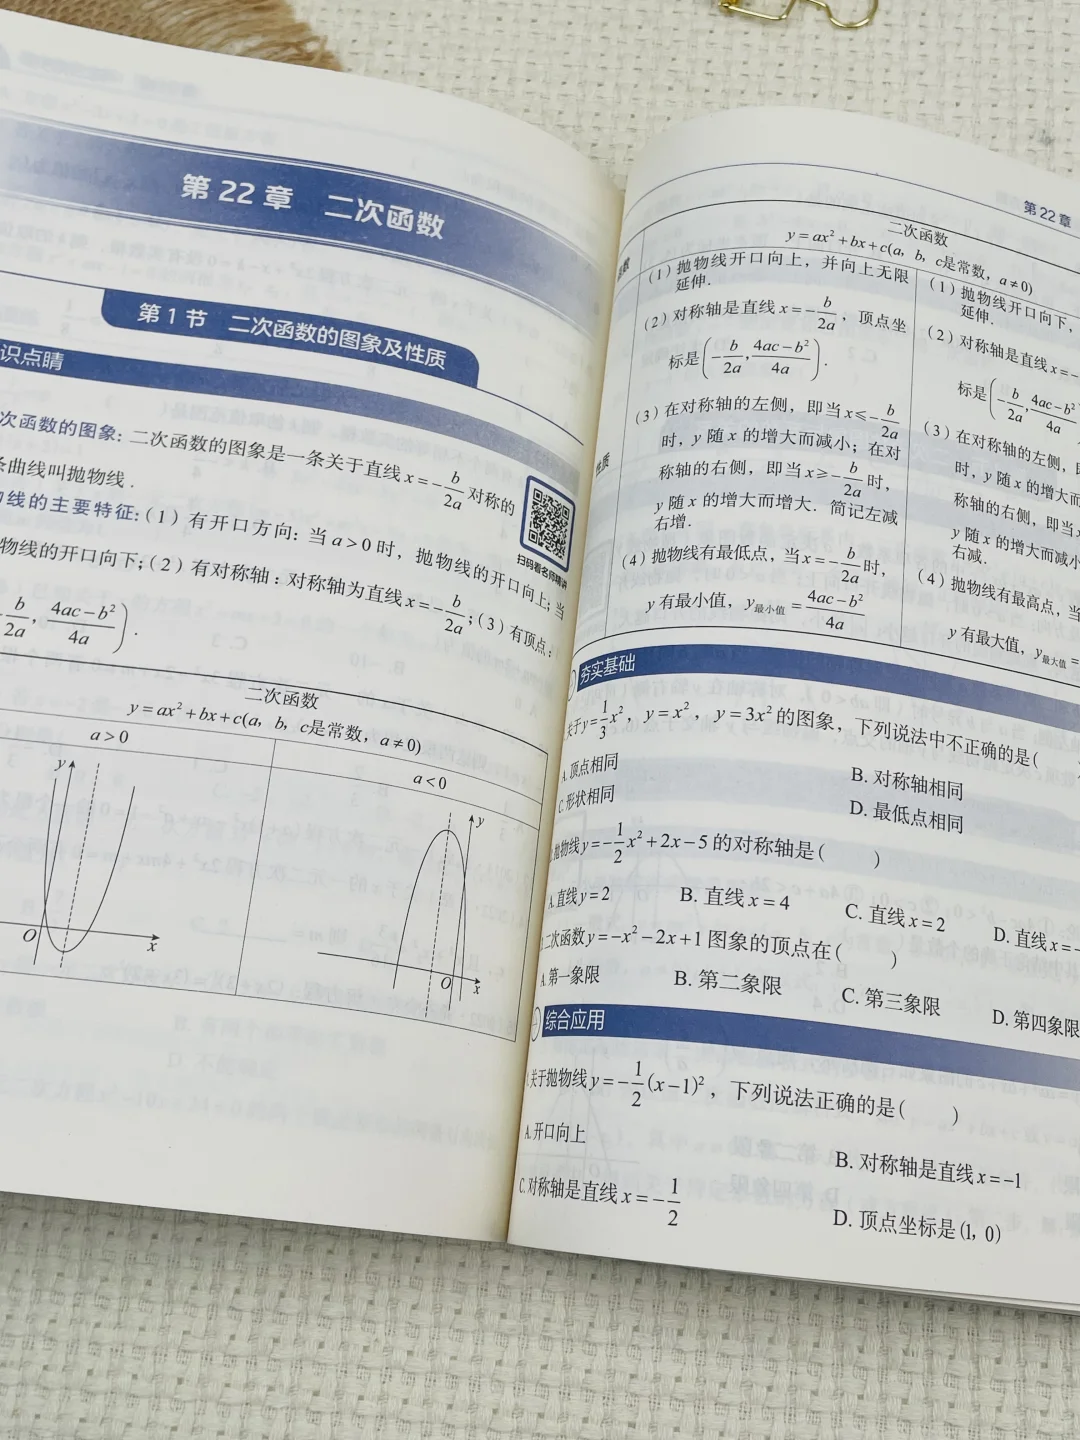 第 22 章 二次函数
第 1 节 二次函数的图象及性质
识点晴
次函数的图象: 二次函数的图象是一条关于直线 x=-b/2a 对称的
条曲线叫抛物线 .
物线的主要特征: (1) 有开口方向: 当 a>0 时, 抛物线的开口向上; 当
物线的开口向下; (2) 有对称轴 : 对称轴为直线 x=-b/2a; (3) 有顶点:
b/2a, (4ac-b²)/4a) .
扫码看名师精讲
二次函数
y=ax²+bx+c(a, b, c是常数, a≠0)
a>0
a<0
y
O
x
y
O
x
第 22 章
二次函数
y=ax²+bx+c(a, b, c是常数, a≠0)
性质
(1) 抛物线开口向上, 并向上无限
延伸.
(2) 对称轴是直线 x=-b/2a, 顶点坐
标是(-b/2a, (4ac-b²)/4a) .
(3) 在对称轴的左侧, 即当 x≤-b/2a
时, y 随 x 的增大而减小; 在对
称轴的右侧, 即当 x≥-b/2a 时,
y 随 x 的增大而增大. 简记左减
右增.
(4) 抛物线有最低点, 当 x=-b/2a 时,
y 有最小值, y最小值=(4ac-b²)/4a
(1) 抛物线开口向下,
延伸.
(2) 对称轴是直线 x=-
标是(-b/2a, (4ac-b²)/4a
(3) 在对称轴的左侧,
时, y 随 x 的增大而
称轴的右侧, 即当
y 随 x 的增大而减小
右减.
(4) 抛物线有最高点, 当
y 有最大值, y最大值=
夯实基础
关于 y=1/3x², y=x², y=3x² 的图象, 下列说法中不正确的是(
A. 顶点相同
B. 对称轴相同
C. 形状相同
D. 最低点相同
抛物线 y=-1/2x²+2x-5 的对称轴是( )
A. 直线 y=2
B. 直线 x=4
C. 直线 x=2
D. 直线 x=-
二次函数 y=-x²-2x+1 图象的顶点在( )
A. 第一象限
B. 第二象限
C. 第三象限
D. 第四象限
综合应用
关于抛物线 y=-1/2(x-1)², 下列说法正确的是( )
A. 开口向上
B. 对称轴是直线 x=-1
C. 对称轴是直线 x=-1/2
D. 顶点坐标是 (1, 0)